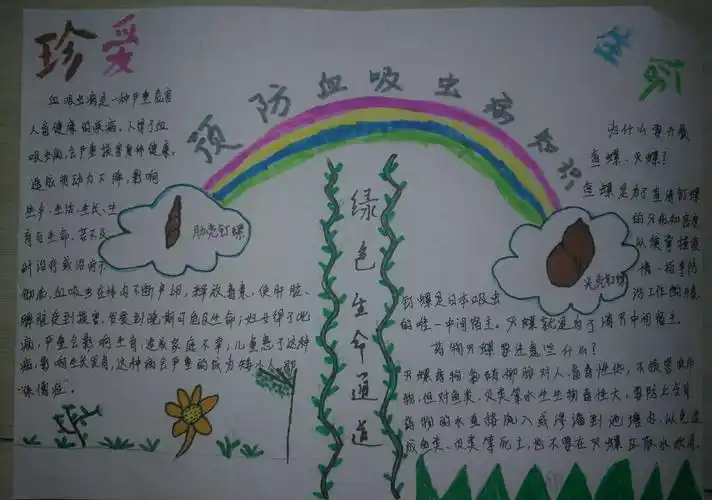 珍爱
生命
预防血吸虫病知识
血吸虫病是一种严重危害
人畜健康的疾病。人得了血
吸虫病,会严重损害身体健康,
造成劳动力下降,影响
生产、生活、生长、生
育与生命,若不及
时治疗或治疗不
彻底,血吸虫在体内不断产卵,释放毒素,使肝脏、
脾脏受到损害,发展到晚期可危及生命;妇女得了此
病,严重会影响生育,造成家庭不幸;儿童患了这种
病,影响生长发育,这种病会严重的成为矮小人即
"侏儒症"。
肋壳钉螺
绿色生命通道
光壳钉螺
为什么要开展
查螺、灭螺?
查螺是为了查清钉螺
的分布和密度
以便掌握疫
情、指导防
治工作的开展.
钉螺是日本吸虫
的唯一中间宿主。灭螺就是为了消灭中间宿主.
药物灭螺要注意些什么?
灭螺药物氯硝柳胺对人畜毒性低,不损害农作
物,但对鱼类、贝类等水生生物毒性大,要防止含有
药物的水直接流入或浸漏到池塘内,以免造
成鱼类、贝类等死亡,也不要在灭螺区取水饮用.